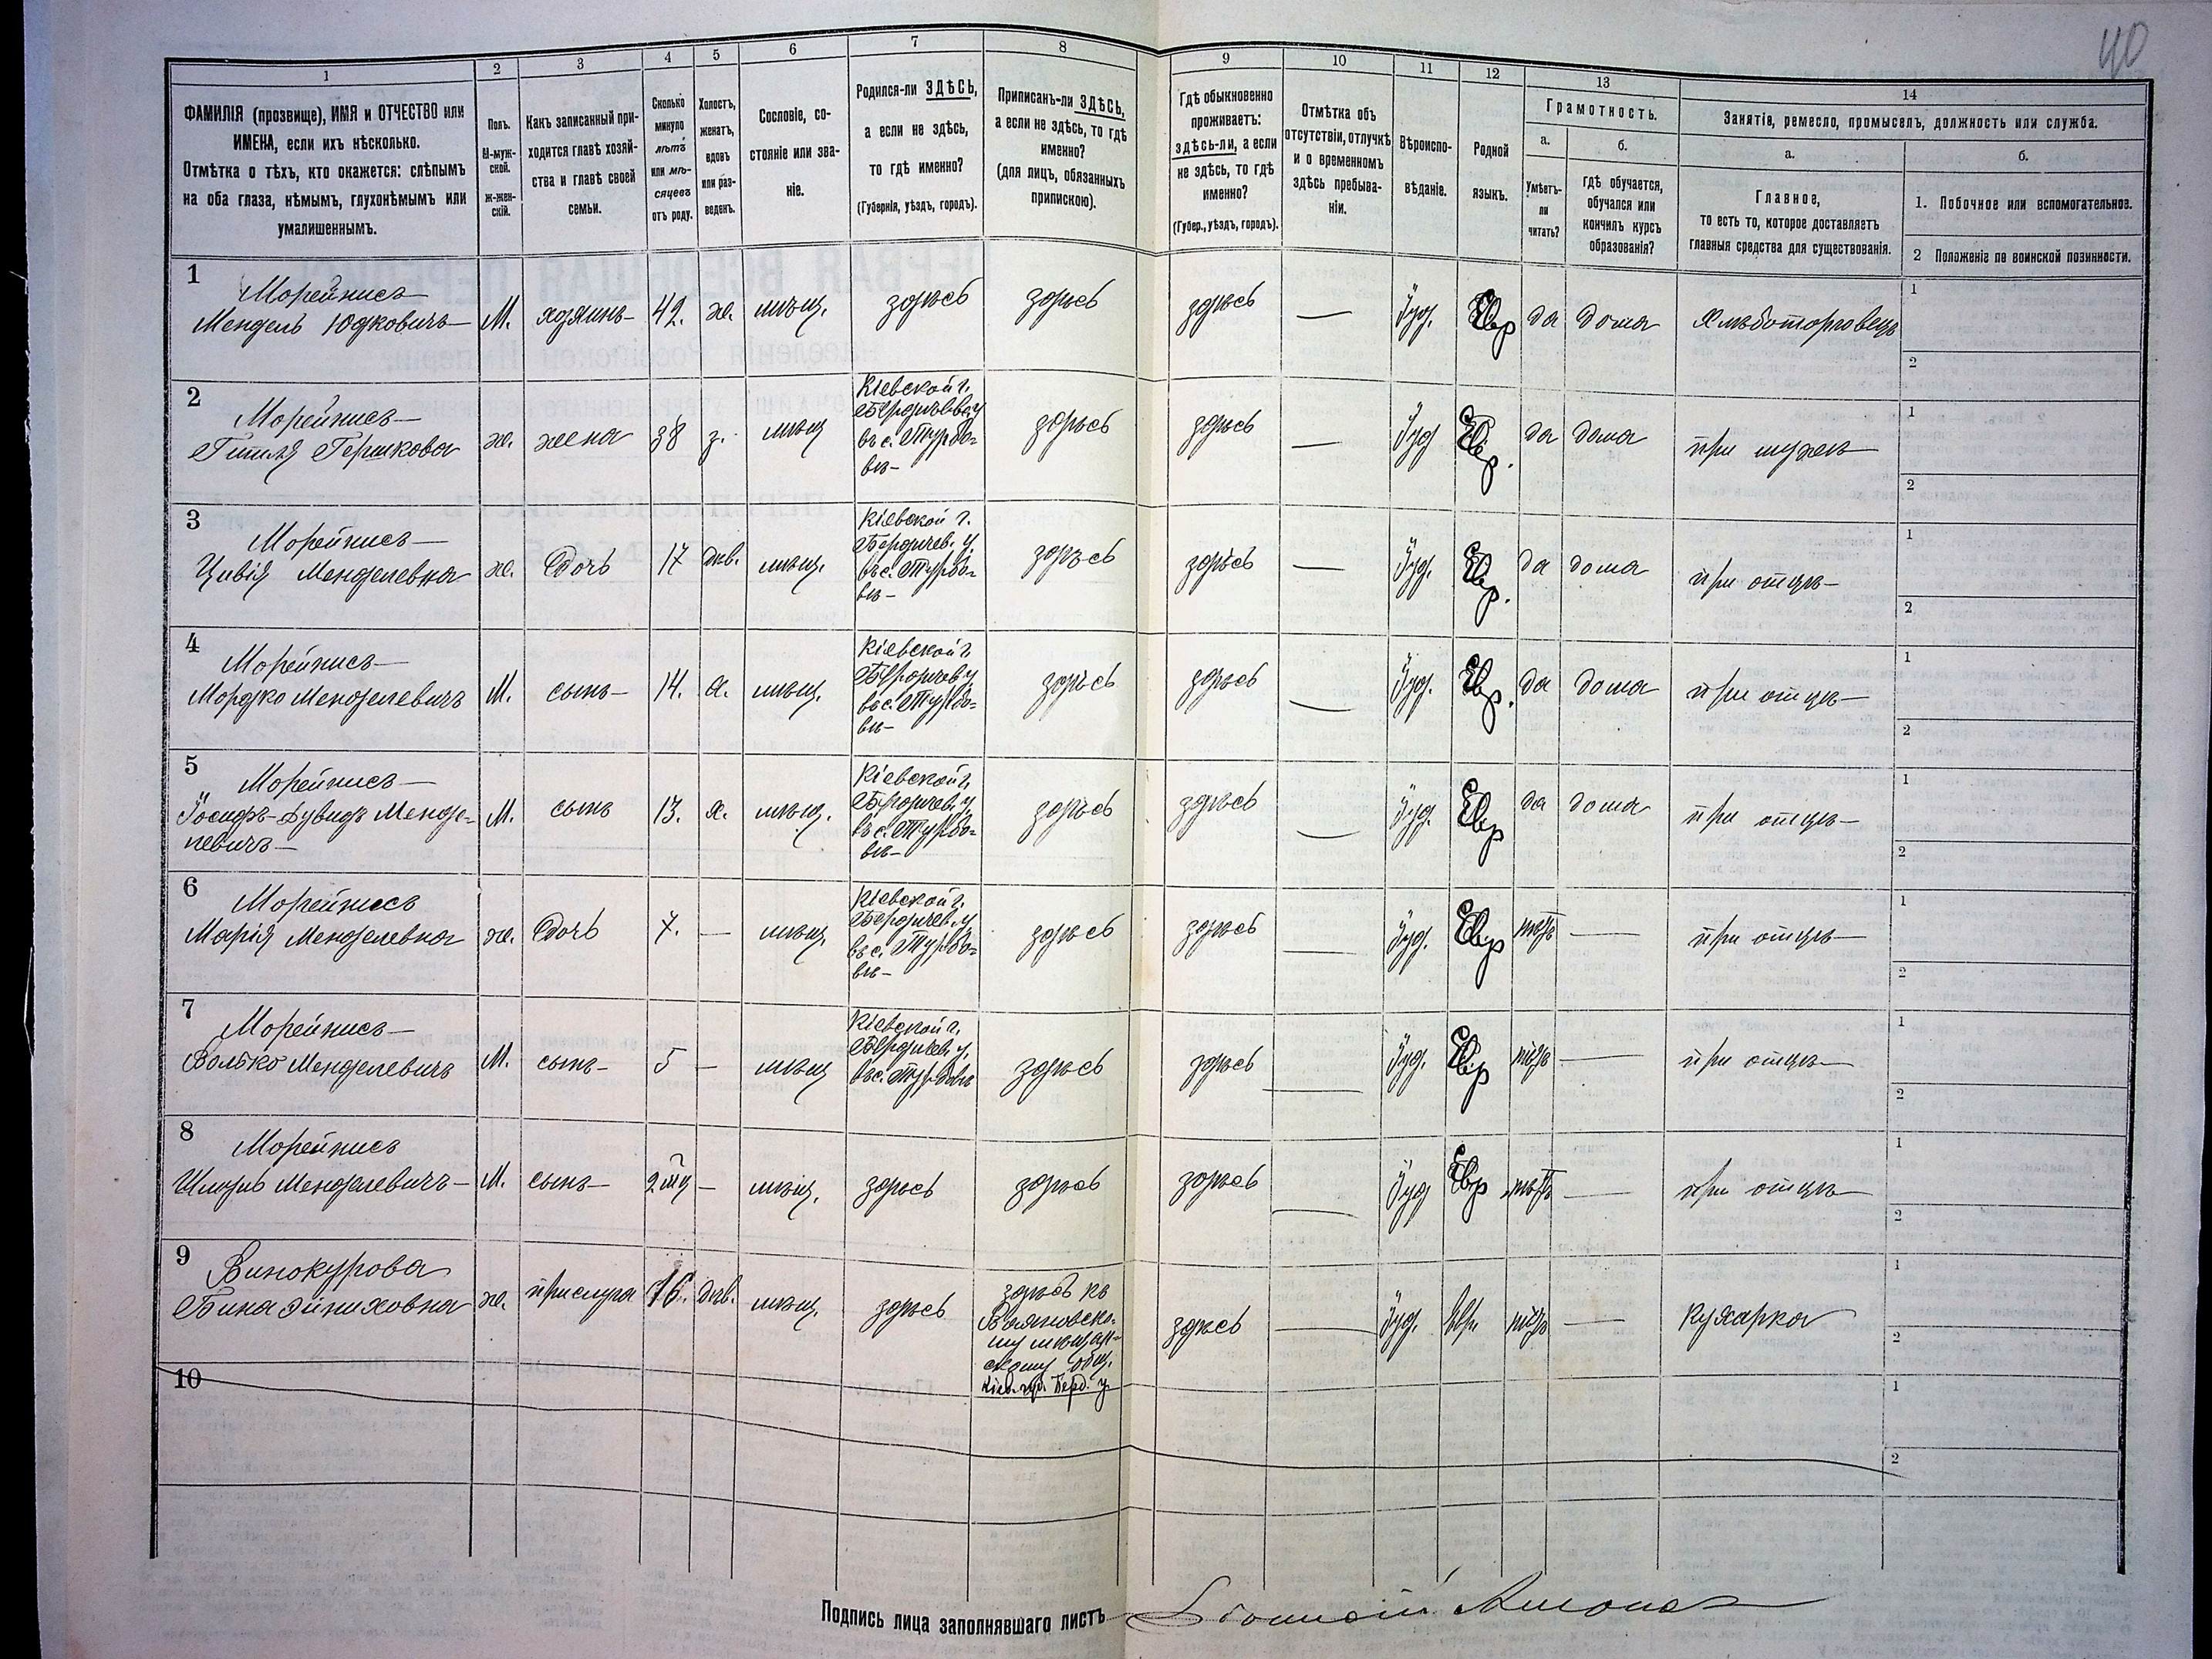 40
1
2
3
4
5
6
7
8
9
10
11
12
13
14
ФАМИЛІЯ (прозвище), ИМЯ и ОТЧЕСТВО или
ИМЕНА, если ихъ нѣсколько.
Отмѣтка о тѣхъ, кто окажется: слѣпымъ
на оба глаза, нѣмымъ, глухонѣмымъ или
умалишеннымъ.
Полъ.
М-муж-
ской.
Ж-жен-
скій.
Какъ записанный при-
ходится главѣ хозяй-
ства и главѣ своей
семьи.
Сколько
минуло
лѣтъ
или мѣ-
сяцевъ
отъ роду.
Холостъ,
женатъ,
вдовъ
или раз-
веденъ.
Сословіе, со-
стояніе или зва-
ніе.
Родился-ли ЗДѢСЬ,
а если не здѣсь,
то гдѣ именно?
(Губернія, уѣздъ, городъ).
Приписанъ-ли ЗДѢСЬ,
а если не здѣсь, то гдѣ
именно?
(для лицъ, обязанныхъ
припискою).
Гдѣ обыкновенно
проживаетъ:
здѣсь-ли, а если
не здѣсь, то гдѣ
именно?
(Губер., уѣздъ, городъ).
Отмѣтка объ
отсутствіи, отлучкѣ
и о временномъ
здѣсь пребыва-
ніи.
Вѣроиспо-
вѣданіе.
Родной
языкъ.
Грамотность.
а.
Умѣетъ-
ли
читать?
б.
гдѣ обучается,
обучался или
кончилъ курсъ
образованія?
Занятіе, ремесло, промыселъ, должность или служба.
а.
Главное,
то есть то, которое доставляетъ
главныя средства для существованія.
б.
1. Побочное или вспомогательное.
2 Положеніе по воинской повинности.
1
Морейнисъ
Мендель Юдковичъ
М.
хозяинъ
42.
ж.
мѣщ.
здѣсь
здѣсь
здѣсь
—
Іуд.
Евр
да
дома
Хлѣботорговецъ
1
2
2
Морейнисъ
Гитля Гершкова
ж.
жена
38
з.
мѣщ
Кіевской г.
Бердичев. у
въ с. Турбо-
вѣ
здѣсь
здѣсь
—
Іуд
Евр.
да
дома
при мужѣ
1
2
3
Морейнисъ
Цивія Менделевна
ж.
дочь
17
дѣв.
мѣщ.
Кіевской г.
Бердичев. у.
въ с. Турбо-
вѣ
здѣсь
здѣсь
—
Іуд.
Евр.
да
дома
при отцѣ
1
2
4
Морейнисъ
Мордко Менделевичъ
М.
сынъ
14.
х.
мѣщ.
Кіевской г.
Бердичев. у
въ с. Турбо-
вѣ
здѣсь
здѣсь
—
Іуд.
Евр.
да
дома
при отцѣ
1
2
5
Морейнисъ
Іосифъ-Дувидъ Менде-
левичъ
М.
сынъ
13.
х.
мѣщ.
Кіевской г.
Бердичев. у
въ с. Турбо-
вѣ
здѣсь
здѣсь
—
Іуд.
Евр
да
дома
при отцѣ
1
2
6
Морейнисъ
Марія Менделевна
ж.
дочь
7.
—
мѣщ.
Кіевской г.
Бердичев. у
въ с. Турбо-
вѣ
здѣсь
здѣсь
—
Іуд.
Евр
нѣтъ
—
при отцѣ
1
2
7
Морейнисъ
Волько Менделевичъ
М.
сынъ
5
—
мѣщ
Кіевской г.
Бердичев. у.
въ с. Турбовѣ
здѣсь
здѣсь
—
Іуд.
Евр
нѣтъ
—
при отцѣ
1
2
8
Морейнисъ
Менделевичъ
М.
сынъ
—
мѣщ.
здѣсь
здѣсь
здѣсь
—
Іуд
Евр
нѣтъ
—
при отцѣ
1
2
9
Винокурова
Бина Эйниховна
ж.
прислуга
16.
дѣв.
мѣщ.
здѣсь
здѣсь къ
мѣщан-
скому общ.
Кіев. губ. Берд. у.
здѣсь
—
Іуд.
Евр.
нѣтъ
—
Кухарка
1
2
10
1
2
Подпись лица заполнявшаго листъ